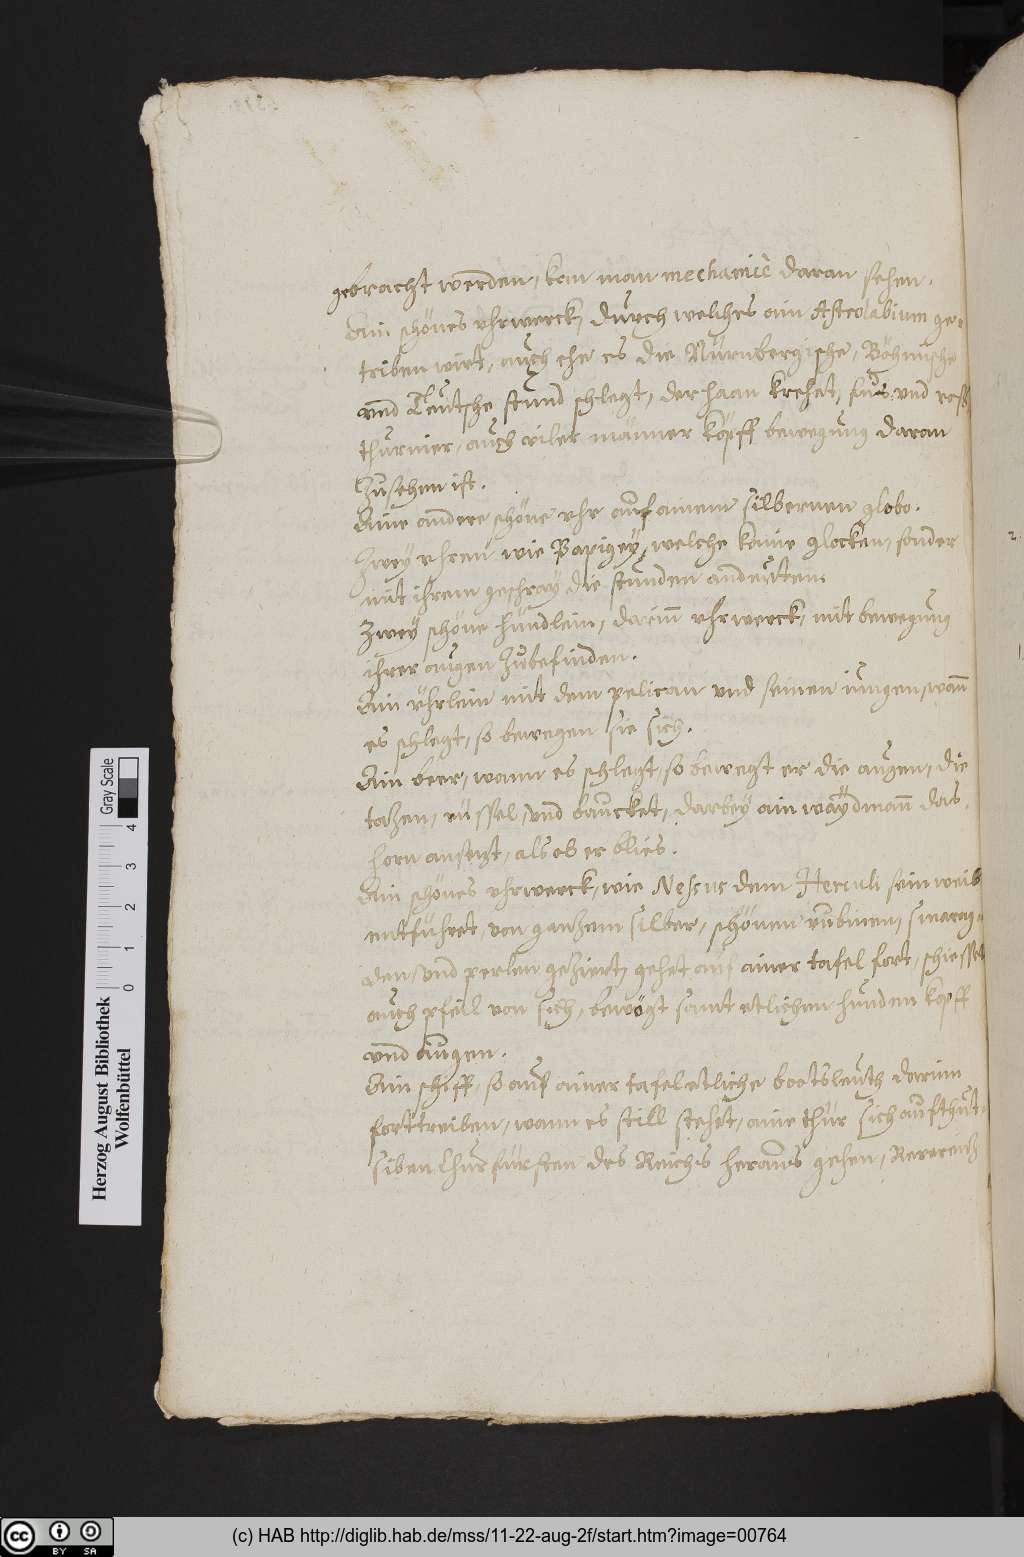 gebracht werden, kan man mechanicè daran sehen.
Ain schönes uhrwerck, durch welches ain Astrolabium ge-
triben wirt, auch ehe es die Nürnbergische, Böhmische
und Teutsche stund schlegt, der haan krehet, fus und ross
thurnier, auch viler männer köpff bewegung daran
zusehen ist.
Aine andere schöne uhr auf ainem silbernen globo.
Zwey uhren wie Papigey, welche kaine glocken, sonder
mit ihrem geschray die stunden andeuten.
Zwey schöne hündlein, darinn uhrwerck, mit bewegung
ihrer augen zubefinden.
Ain ührlein mit dem pelican und seinen iungen, wann
es schlegt, so bewegen sie sich.
Ain beer, wann es schlegt, so bewegt er die augen, die
tatzen, rüssel, und baucket, darbey ain waydmann das
horn ansetzt, als ob er blies.
Ain schönes uhrwerck, wie Nessus dem Herculi sein weib
entführet, von gantzem silber, schönen rubinen, smarag-
den, und perlen geziert, gehet auf ainer tafel fort, schiesset
auch pfeill von sich, bewögt samt etlichen hunden kopff
und augen.
Ain schiff, so auf ainer tafel etliche bootsleuth darinn
forttreiben, wann es still stehet, aine thür sich aufthut,
siben Churfürsten des Reichs heraus gehen, Reverentz
Gray Scale
0 1 2 3 4
Herzog August Bibliothek
Wolfenbüttel
cc BY SA
(c) HAB http://diglib.hab.de/mss/11-22-aug-2f/start.htm?image=00764